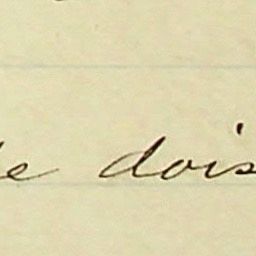 e dois